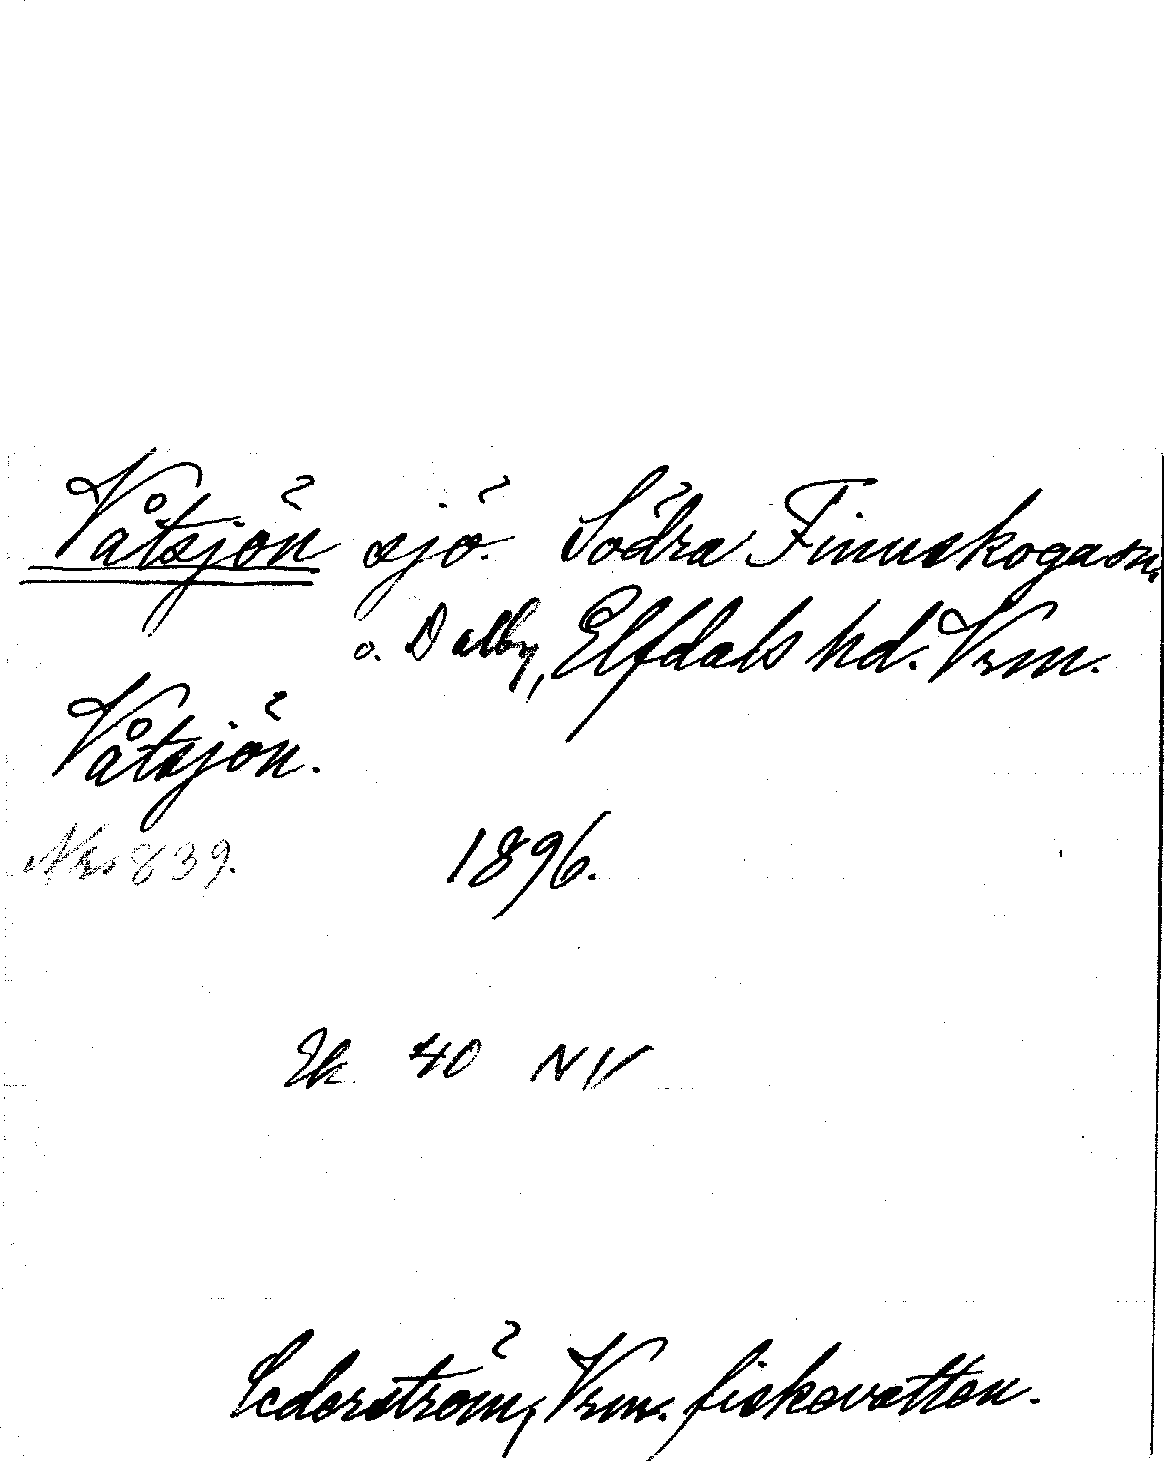 Våtsjön sjö. Södra Finnskogasn.
o. Dalby, Elfdals hd. Vrm.
Våtsjön.
Nr 839. 1896.
Ek 40 NV
Cederström, Vrm. fiskevatten.